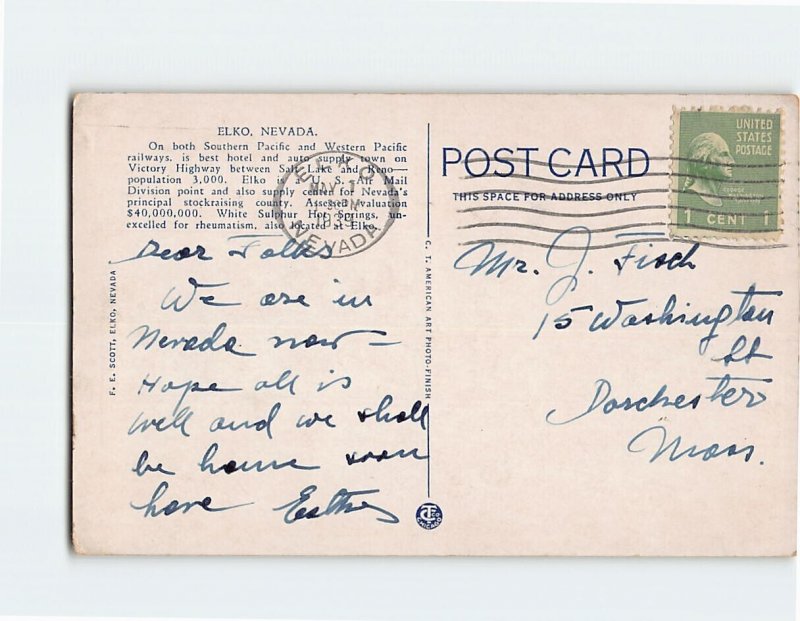 ELKO, NEVADA.
On both Southern Pacific and Western Pacific
railways, is best hotel and auto supply town on
Victory Highway between Salt Lake and
population 3,000. Elko is a U. S. Air Mail
Division point and also supply center for Nevada's
principal stockraising county. Assessed valuation
$40,000,000. White Sulphur Hot Springs, un-
excelled for rheumatism, also located at Elko.
Dear Folks
We are in
Nevada now —
Hope all is
well and we shall
be home soon
Love Esther
F. E. SCOTT, ELKO, NEVADA
C. T. AMERICAN ART PHOTO-FINISH
ELKO
MAY 1
1939
NEVADA
POST CARD
THIS SPACE FOR ADDRESS ONLY
UNITED
STATES
POSTAGE
GEORGE
WASHINGTON
1 CENT 1
Mr. J. Fisch
15 Washington
St
Dorchester
Mass.
CHICAGO